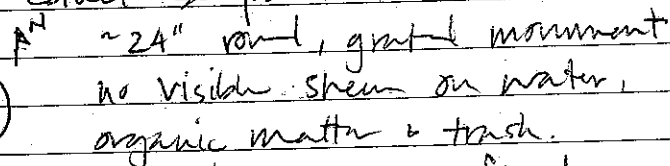 ~24" round, grated monument
no visible sheen on water,
organic matter & trash.